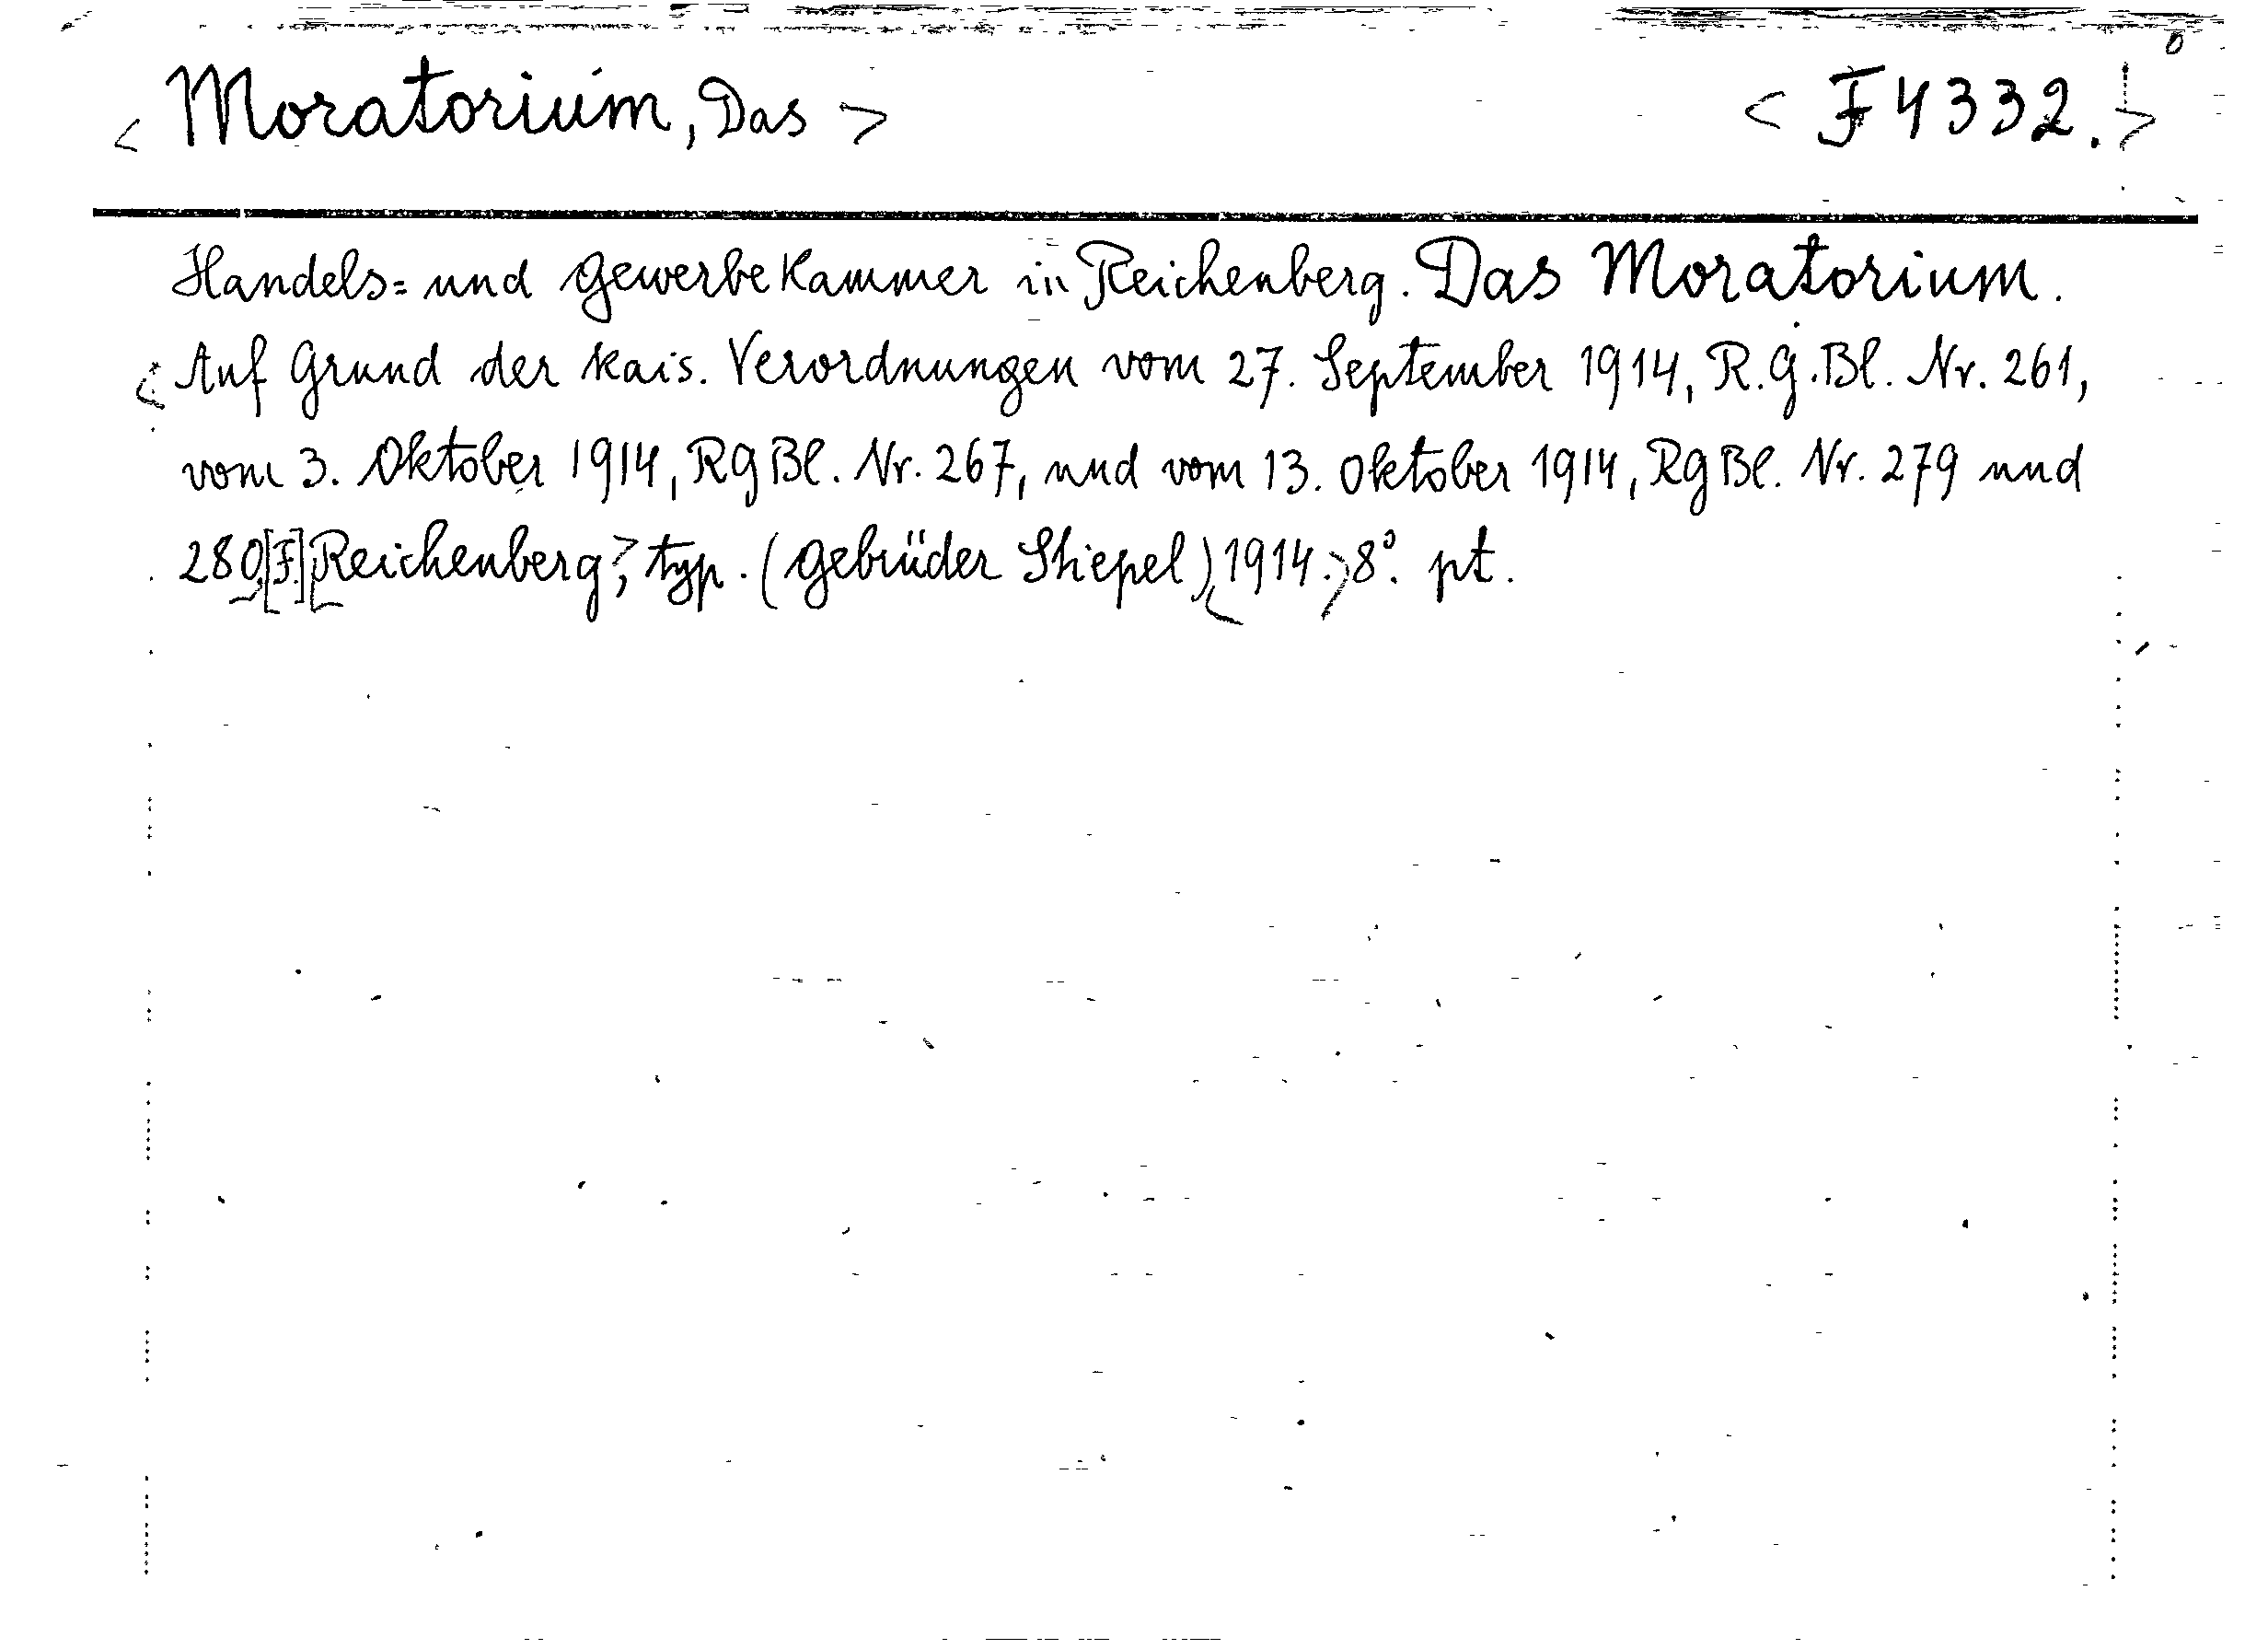 < Moratorium, Das > < F 4332. >
Handels= und Gewerbekammer in Reichenberg. Das Moratorium.
< Auf Grund der kais. Verordnungen vom 27. September 1914, R.G.Bl. Nr. 261,
vom 3. Oktober 1914, RGBl. Nr. 267, und vom 13. Oktober 1914, RGBl. Nr. 279 und
280,[F.] Reichenberg>, typ. (Gebrüder Stiepel) <1914.> 8°. pt.